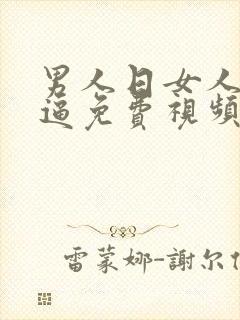 男人日女人
逼免費視頻
雷蒙娜-謝尔